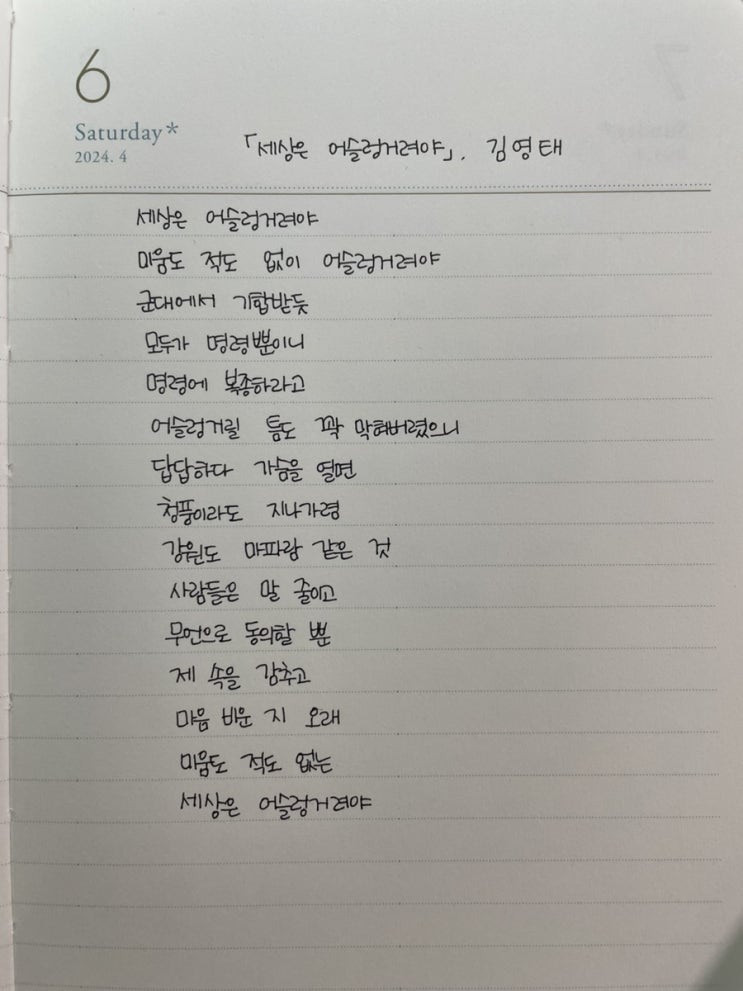 6
Saturday*
2024. 4
「세상은 어슬렁거려야」, 김영태
세상은 어슬렁거려야
미움도 적도 없이 어슬렁거려야
군대에서 기합받듯
모두가 명령뿐이니
명령에 복종하라고
어슬렁거릴 틈도 꽉 막혀버렸으니
답답하다 가슴을 열면
청풍이라도 지나가령
강원도 마파람 같은 것
사람들은 말 줄이고
무언으로 동의할 뿐
제 속을 감추고
마음 비운 지 오래
미움도 적도 없는
세상은 어슬렁거려야